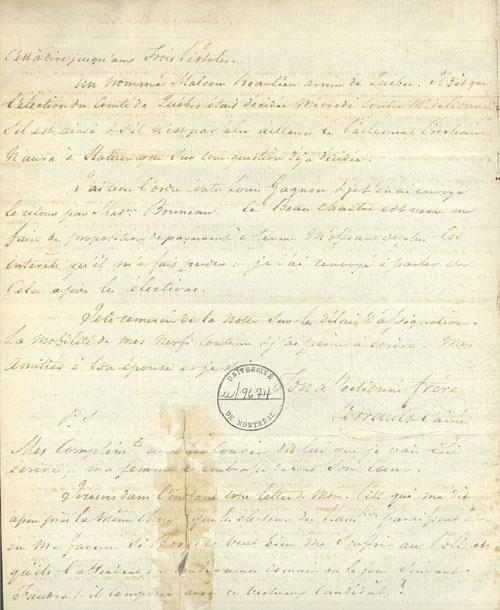 c'est à dire jusqu'aux Trois Pistoles.
un nommé Malcom Beaulieu arrive de Québec. Il dit que
l'élection du Comté de Québec était décidée Mécredi contre Mr
S'il est ainsi & s'il n'est pas élu ailleurs le Parlement Prochain
N'aura à Statuer que Sur une question déjà décidée.
J'ai reçu l'ordre contre Louis Gagnon & je t'en ai envoyé
le retour par Madme Bruneau. Le Beau Chartré est venu me
faire de proposition de payement à terme m'offrant de plus les
intérêts qu'il m'a fait perdre : je l'ai renvoyé à parler de
Cela après les élections.
Je te remercie de la Notte Sur le délais d'assignation.
La mobilité de mes Nerfs continue & j'ai peine à écrire. Mes
Amitiés à ton épouse et je
Ton affectionné frère
Perrault l'ainé
UNIVERSITÉ
u/9674
DE MONTRÉAL
P. S
Mes Complimts au cousin dis lui que je vais lui
écrire, ma femme t'embrasse de tout Son Coeur.
Je reçois dans l'instant une lettre de Mon. Têtu qui me dit
à peu près la même chose que les électeurs des
en ma faveur. Si veut bien me
qu'ils l'attendent demain ou le jour Suivant.
Faudra-t-il avec ce vertueux Candidat ?